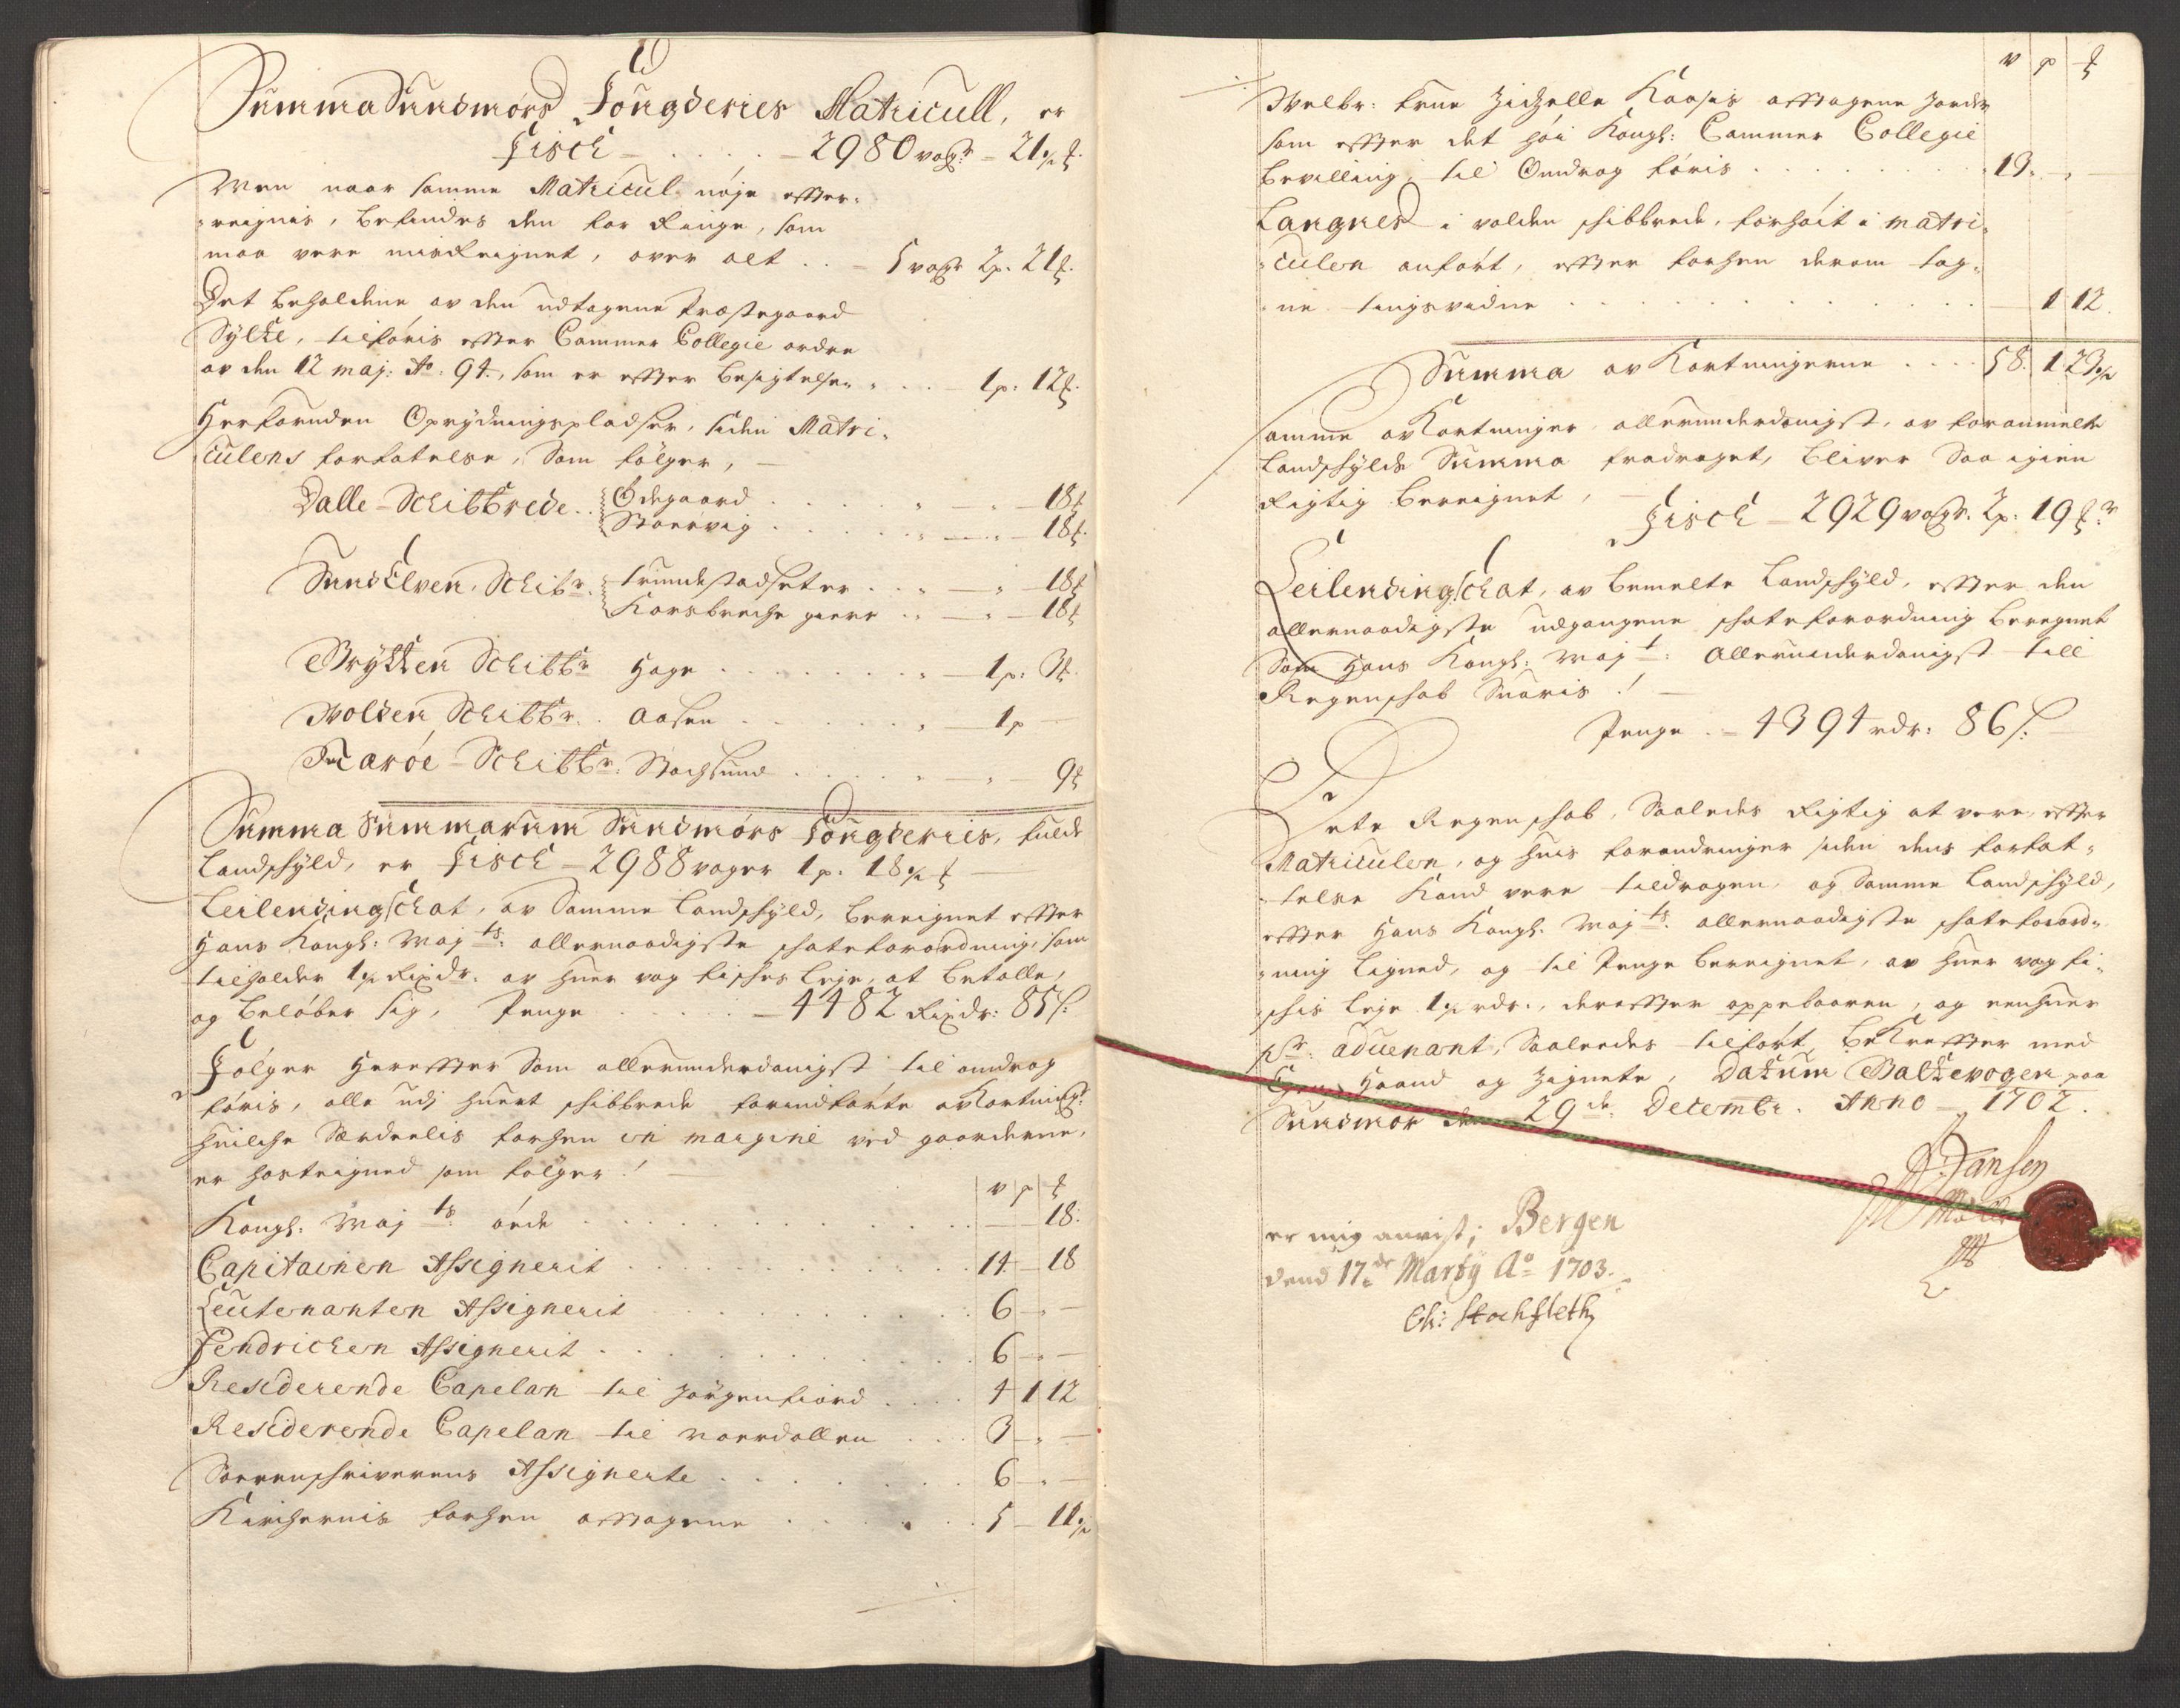 Summa Sundmørs Fougderies Matricull, er
Fisch - . . . . - 2980 vogr - 21½ ℔.
Men naar samme Matricul nøje effter=
=reignis, befindes den for Ringe, som
maa vere misreignet, over alt . . - 5 vogr 2p. 21℔.
Det beholdene av den udtagene Præstegaard
Sylte, tilføris effter Cammer Collegie ordre
av den 12 maj: Ao: 94., som er effter besigtelsen . . . 1p: 12℔.
Herforuden Oprydningspladser, siden Matri=
culens forfatelse, Som følger, —
Dalle-Schibbrede . . Ødegaard . . . . . . 18℔
Storevig . . . . . . 18℔.
Sundelven, Schibr. trundstadseter . . . . 18℔
Korsbreche giere . . 18℔
Brytten Schibbr Hage . . . . . . 1p: 3℔.
Wolden Schibbr. . Aasen . . . . . 1p —
Harøe-Schibbr. Stochsund . . . . . 9℔
Summa Summarum Sundmørs Fougderies, fulde
Landschyld, er Fisch - 2988 voger 1p. 18½ ℔ —
Leilendingschat, av Samme Landschyld, bereignet effter
Hans Kongl: Maj ts: allernaadigste schateforordning, som
tilholder 1½ Rixdr. av huer vog fisches leje, at betalle,
og beløber sig, Penge . . . . - 4482 Rixdr: 85 s.
Følger hereffter Som allerunderdanigst til omdrag
føris, alle udj huert schibbrede forindførte avKortningr
huilche Særdeelis forhen in margine ved gaarderne,
er hosteigned som følger! —
v p ℔
Kongl: Maj ts: øede . . . . . . . . . — — 18.
Capitainen Assignerit . . . . . . . . 14 — 18
Leutenanten Assignerit . . . . . . . 6 — —
Fendrichen Assignerit . . . . . . . . 6 — —
Residerende Capelan til Jørgenfiord . . . . 4 1 12
Residerende Capelan til Noerdallen . . . 3 — —
Sorenschriverens Assignerte . . . . . . 6 — —
Kirchernis forhen afftagene . . . . . . 5 — 11½
v p ℔
Welbr: Frue Zidzelle Kaases afftagene Jorder
som effter det høi Kongl: Cammer Collegie
bevilling, til Omdrag føris . . . . . . . 13. — —
Langnes i volden schibbrede, forhøit i matri=
=culen anført, effter forhen derom tag=
=ne tingsvidne . . . . . . . . . — 1 12.
Summa av Kortningerne . . . . 58. 1 23½
Samme avKortninger allerunderdanigst, av foranmelte
Landschylds Summa fradraget, bliver Saa igien
Rigtig bereignet, — Fisch - 2929 vogr. 2p: 19 ℔r
Leilendingschat, av bemelte Landschyld, effter den
allernaadigste udgangene schateforordning beregnet
Som Hans Kongl: Maj t: allerunderdanigst till
Regenschab Suaris! —
Penge . - 4394 rdr: 86 s.
Dete Regenschab, Saaledes Rigtig at vere, effter
Matriculen, og huis forandringer siden dens forfat=
=telse Kand vere tildragen, og Samme Landschyld,
effter Hans Kongl: Maj ts: allernaadigste schateforord=
=ning Ligned, og til Penge bereignet, av huer vog fi=
=sches leje 1½ rdr., dereffter oppebaaren, og eenhuer
pr: advenant, Saaleedes tilført, bekreffter med
Egen Haand og Zignete, Datum Baltevogen paa
Sundmør den 29 de: Decembr. Anno - 1702.
er mig anvist; Bergen
dend 17de Martij Ao 1703.